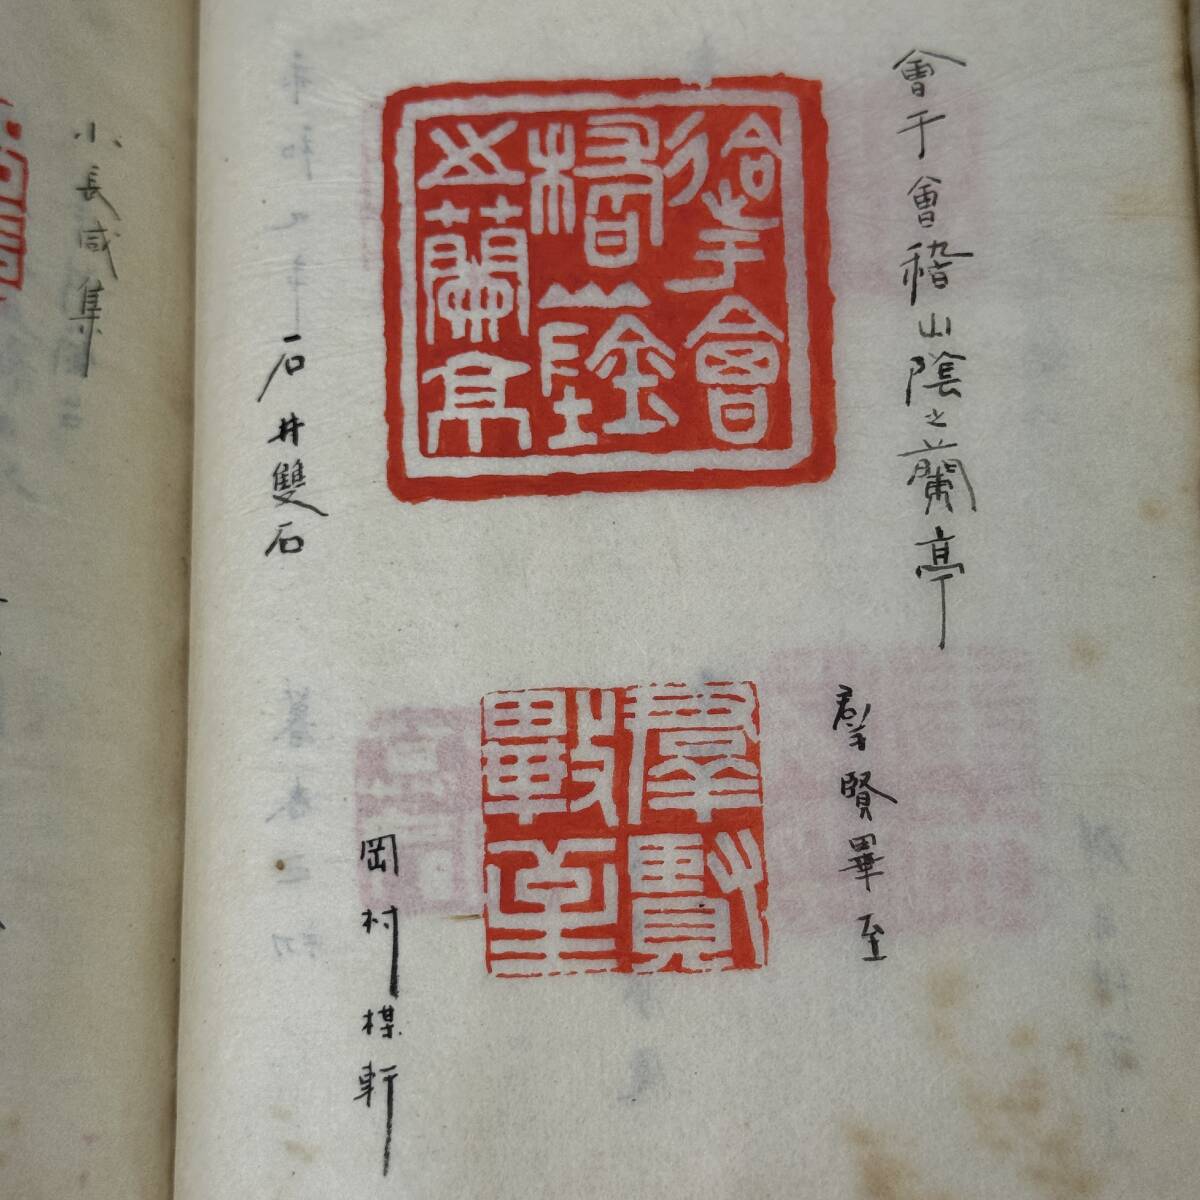 會于會稽山陰之蘭亭
徻于會
稽山陰
之蘭亭
石井雙石
羣賢畢至
羣賢
畢至
岡村楳軒
小長咸集